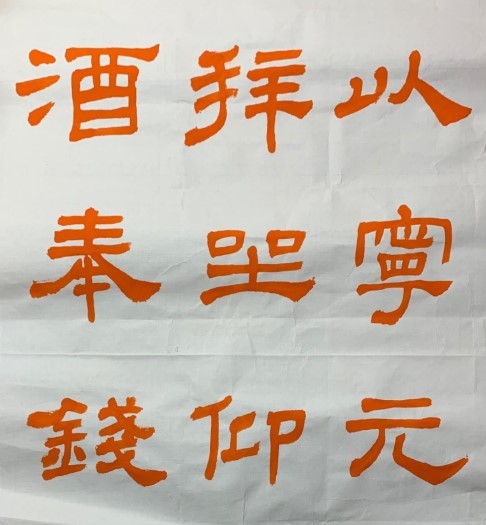 以寧元
拜坐仰
酒奉錢